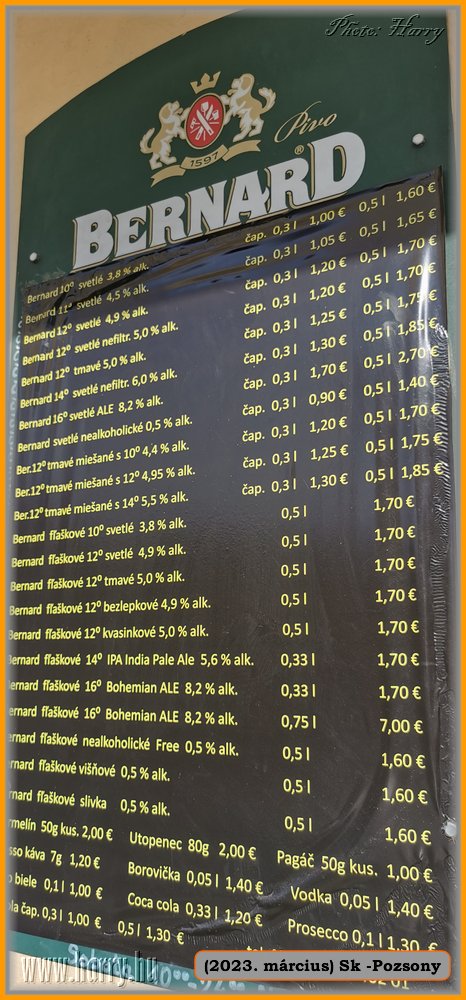 Photo: Harry
1597
Pivo
BERNARD®
Bernard 10° svetlé 3,8 % alk. čap. 0,3 l 1,00 € 0,5 l 1,60 €
Bernard 11° svetlé 4,5 % alk. čap. 0,3 l 1,05 € 0,5 l 1,65 €
Bernard 12° svetlé 4,9 % alk. čap. 0,3 l 1,20 € 0,5 l 1,70 €
Bernard 12° svetlé nefiltr. 5,0 % alk. čap. 0,3 l 1,20 € 0,5 l 1,70 €
Bernard 12° tmavé 5,0 % alk. čap. 0,3 l 1,25 € 0,5 l 1,75 €
Bernard 14° svetlé nefiltr. 6,0 % alk. čap. 0,3 l 1,30 € 0,5 l 1,85 €
Bernard 16° svetlé ALE 8,2 % alk. čap. 0,3 l 1,70 € 0,5 l 2,70 €
Bernard svetlé nealkoholické 0,5 % alk. čap. 0,3 l 0,90 € 0,5 l 1,40 €
Ber.12° tmavé miešané s 10° 4,4 % alk. čap. 0,3 l 1,20 € 0,5 l 1,70 €
Ber.12° tmavé miešané s 12° 4,95 % alk. čap. 0,3 l 1,25 € 0,5 l 1,75 €
Ber.12° tmavé miešané s 14° 5,5 % alk. čap. 0,3 l 1,30 € 0,5 l 1,85 €
Bernard fľaškové 10° svetlé 3,8 % alk. 0,5 l 1,70 €
Bernard fľaškové 12° svetlé 4,9 % alk. 0,5 l 1,70 €
Bernard fľaškové 12° tmavé 5,0 % alk. 0,5 l 1,70 €
Bernard fľaškové 12° bezlepkové 4,9 % alk. 0,5 l 1,70 €
Bernard fľaškové 12° kvasinkové 5,0 % alk. 0,5 l 1,70 €
Bernard fľaškové 14° IPA India Pale Ale 5,6 % alk. 0,33 l 1,70 €
ernard fľaškové 16° Bohemian ALE 8,2 % alk. 0,33 l 1,70 €
ernard fľaškové 16° Bohemian ALE 8,2 % alk. 0,75 l 7,00 €
ernard fľaškové nealkoholické Free 0,5 % alk. 0,5 l 1,60 €
ernard fľaškové višňové 0,5 % alk. 0,5 l 1,60 €
rnard fľaškové slivka 0,5 % alk. 0,5 l 1,60 €
rmelín 50g kus. 2,00 € Utopenec 80g 2,00 € Pagáč 50g kus. 1,00 €
sso káva 7g 1,20 € Borovička 0,05 l 1,40 € Vodka 0,05 l 1,40 €
o biele 0,1 l 1,00 € Coca cola 0,33 l 1,20 € Prosecco 0,1 l 1,30 €
ola čap. 0,3 l 1,00 € 0,5 l 1,30 €
www.harry.hu
(2023. március) Sk -Pozsony